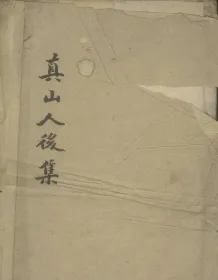 真山人後集